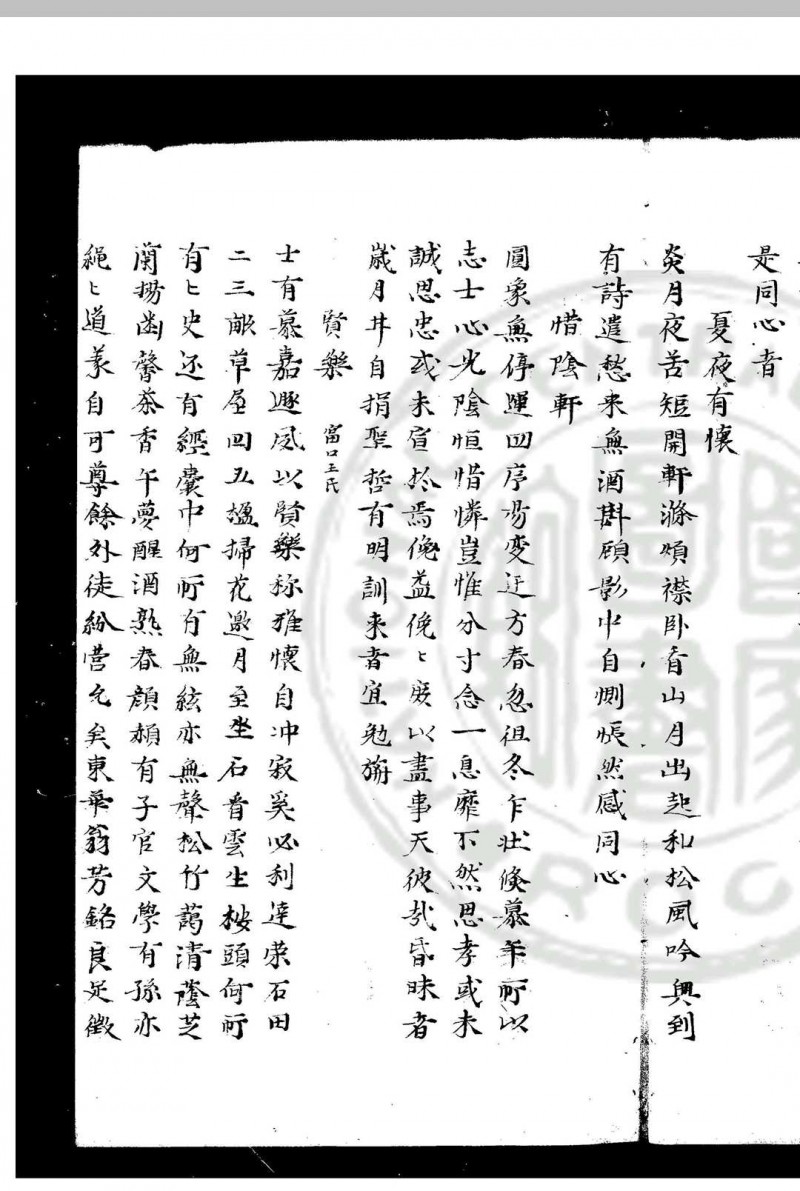 是同心者
夏夜有懷
炎月夜苦短開軒滌煩襟卧看山月出起和松風吟興到
有詩遣愁来無酒斟顧影中自惻悵然感同心
惜陰軒
圓象無停運四序易變迁方春忽徂冬乍壮倏慕年所以
志士心光陰恒惜憐豈惟分寸念一息靡不然思孝或未
誠思忠或未宣於焉俛益俛〻庶以盡事天彼哉昏昧者
歲月井自捐聖哲有明訓来者宜勉旃
賢樂 富口王氏
士有慕嘉遯风以賢樂称雅懷自冲寂奚必利達荣石田
二三畝草屋四五楹掃花邀月至坐石看雲生桉頭何所
有〻史还有經囊中何所有無絃亦無聲松竹蔼清蔭芝
蘭揚幽馨茶香午夢醒酒熟春顔赪有子官文學有孫亦
繩〻道義自可尊餘外徒紛营允矣東華翁芳銘良足徵